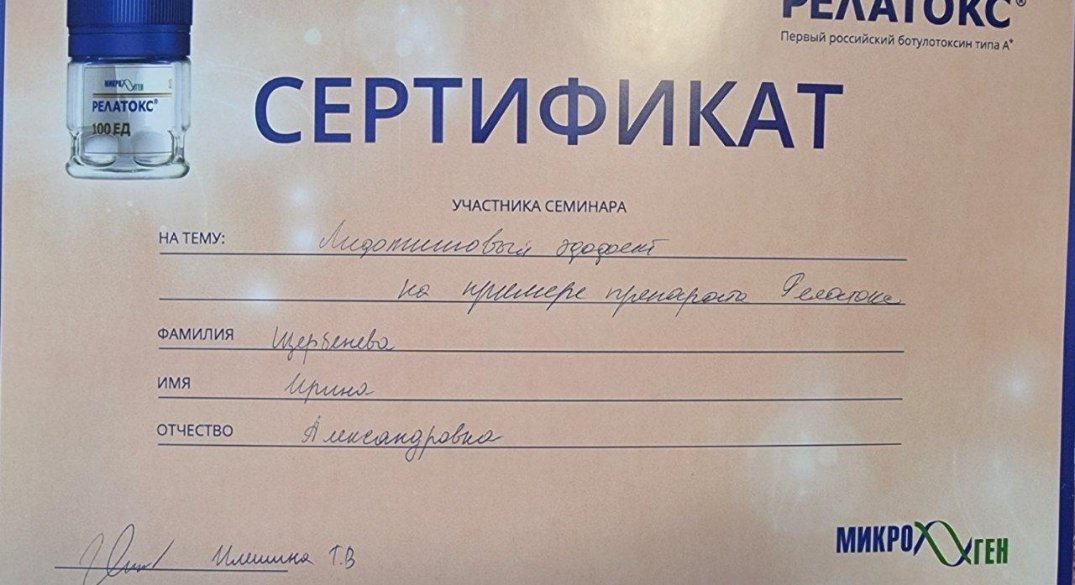 РЕЛАТОКС®
Первый российский ботулотоксин типа А*
МИКРОГЕН
РЕЛАТОКС®
100 ЕД
СЕРТИФИКАТ
УЧАСТНИКА СЕМИНАРА
НА ТЕМУ:
на примере препарата Релатокс
ФАМИЛИЯ Щербенева
ИМЯ Ирина
ОТЧЕСТВО Александровна
Илешина Т.В
МИКРОГЕН